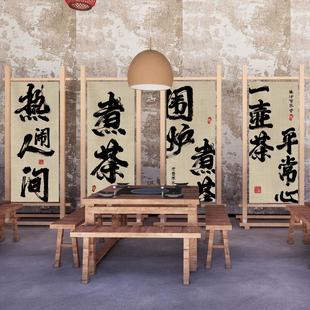 热闹人间
煮茶
围炉
煮茶
一壶茶
平常心